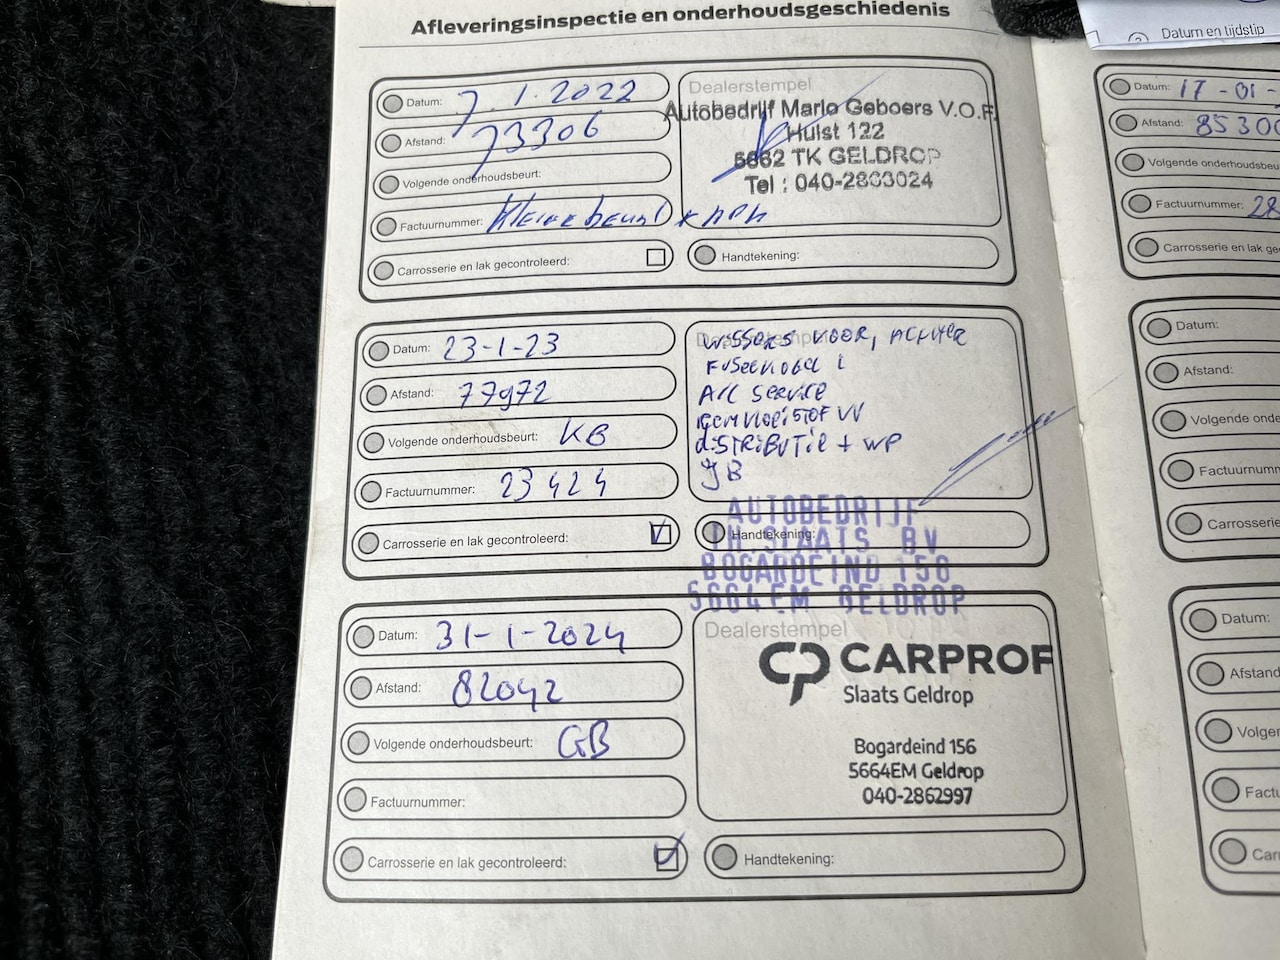 Afleveringsinspectie en onderhoudsgeschiedenis
Datum: 7.1.2022
Afstand: 73306
Volgende onderhoudsbeurt:
Factuurnummer: Kleine beurt + APK
Carrosserie en lak gecontroleerd:
Dealerstempel
Autobedrijf Mario Geboers V.O.F.
Hulst 122
5662 TK GELDROP
Tel : 040-2863024
Handtekening:
Datum: 23-1-23
Afstand: 77972
Volgende onderhoudsbeurt: KB
Factuurnummer: 23424
Carrosserie en lak gecontroleerd:
wissers voor, achter
Fuseekogel
A/C service
remvloeistof VV
distributie + WP
GB
Handtekening:
AUTOBEDRIJF
TH.SLAATS BV
BOGARDEIND 156
5664EM GELDROP
Datum: 31-1-2024
Afstand: 82042
Volgende onderhoudsbeurt: GB
Factuurnummer:
Carrosserie en lak gecontroleerd:
Dealerstempel
CARPROF
Slaats Geldrop
Bogardeind 156
5664EM Geldrop
040-2862997
Handtekening:
Datum en tijdstip
Datum: 17-01-
Afstand: 8530
Volgende onderhoudsbeu
Factuurnummer: 28
Carrosserie en lak ge
Datum:
Afstand:
Volgende onde
Factuurnumm
Carrosserie
Datum:
Afstand
Volger
Factu
Car